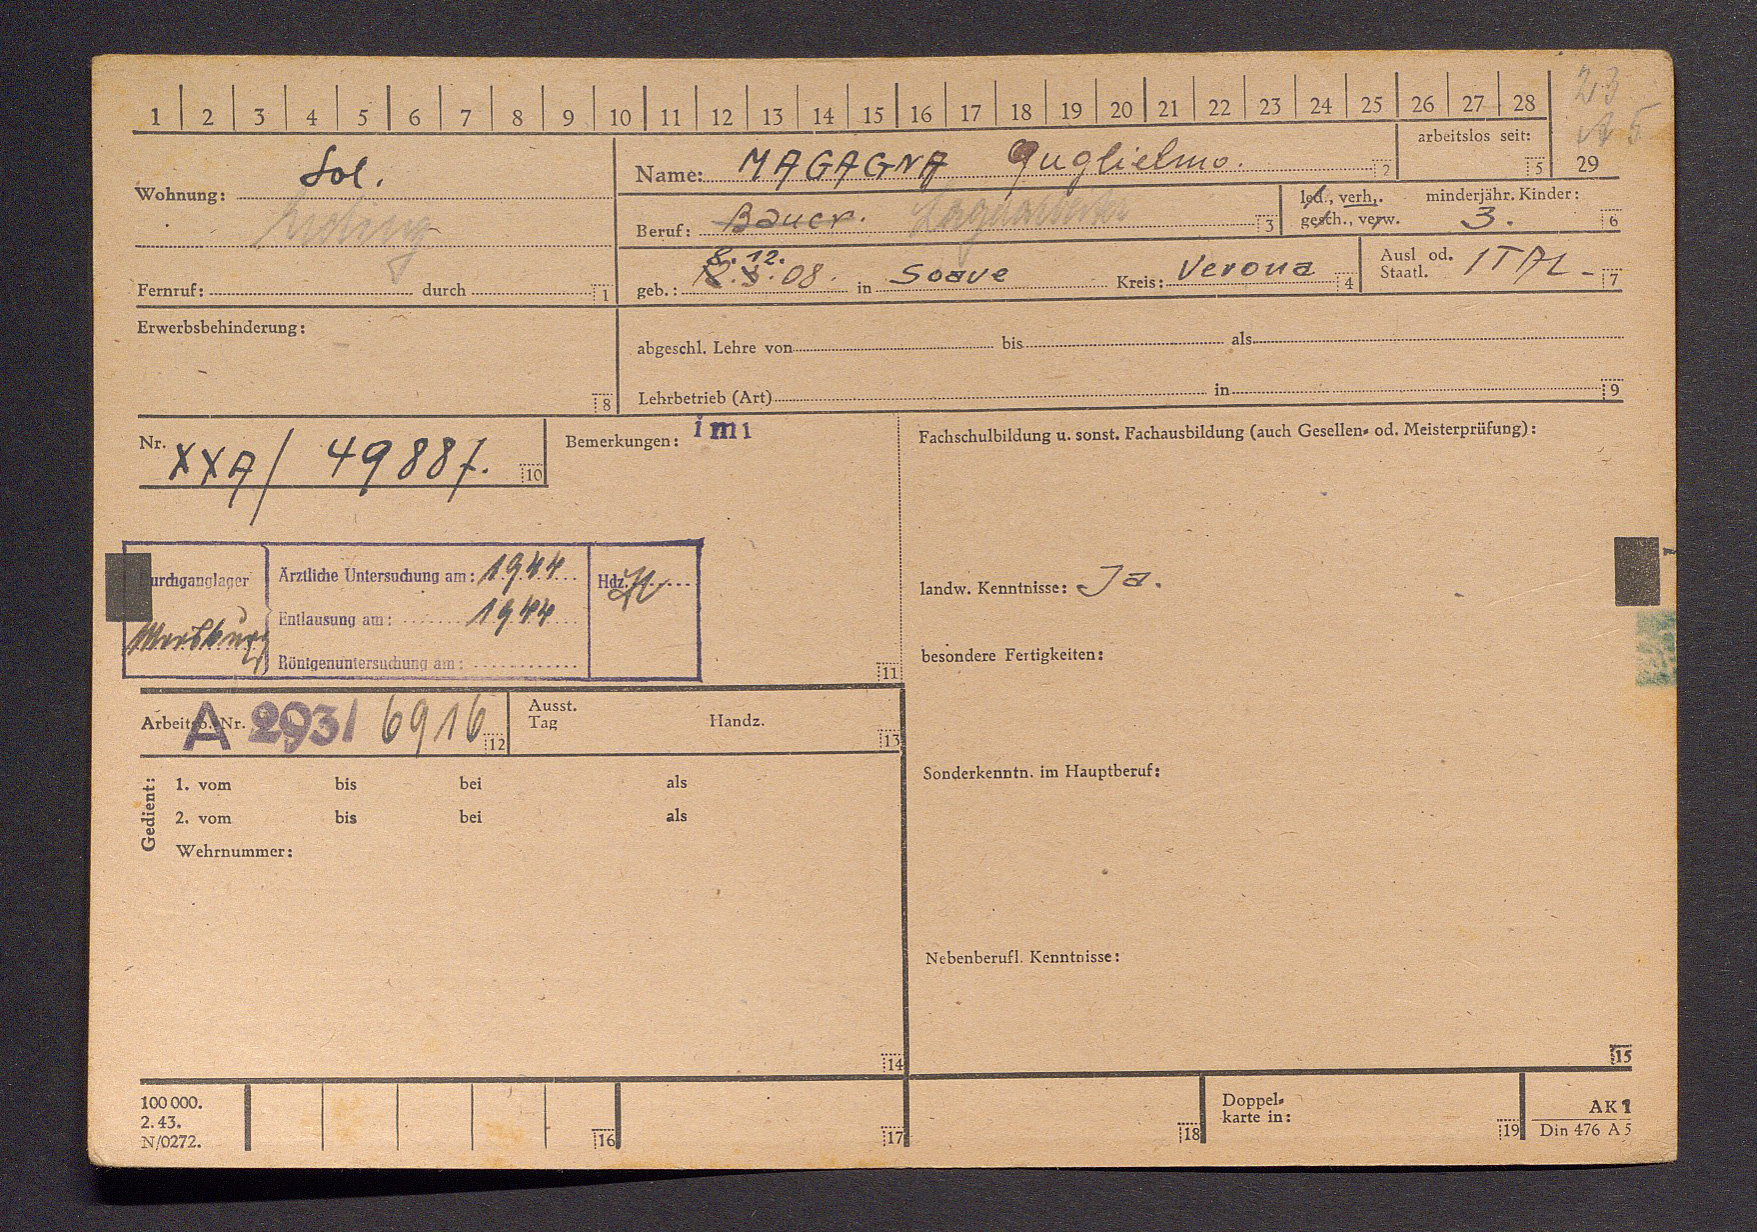 1 2 3 4 5 6 7 8 9 10 11 12 13 14 15 16 17 18 19 20 21 22 23 24 25 26 27 28
23
A 5
29
Wohnung: Sol.
Name: MAGAGNA Guglielmo. 2
arbeitslos seit: 5
Beruf: Bauer. 3
led., verh., gesch., verw.
minderjähr. Kinder: 3. 6
8. 12.
geb.: 08. in Soave Kreis: Verona 4
Ausl od. Staatl. ITAL- 7
Fernruf: durch 1
Erwerbsbehinderung: 8
abgeschl. Lehre von bis als
Lehrbetrieb (Art) in 9
Nr. XXA/ 49887. 10
Bemerkungen: im1
11
Fachschulbildung u. sonst. Fachausbildung (auch Gesellen- od. Meisterprüfung):
urchganglager
Ärztliche Untersuchung am: 1944
Hdz.
Entlausung am: 1944
Röntgenuntersuchung am:
landw. Kenntnisse: Ja.
besondere Fertigkeiten:
Arbeitsb. Nr. A 293/ 6916 12
Ausst. Tag
Handz. 13
Sonderkenntn. im Hauptberuf:
Gedient:
1. vom bis bei als
2. vom bis bei als
Wehrnummer:
14
Nebenberufl. Kenntnisse:
15
100 000.
2. 43.
N/0272.
16
17
18
Doppel-
karte in:
19
AK 1
Din 476 A 5